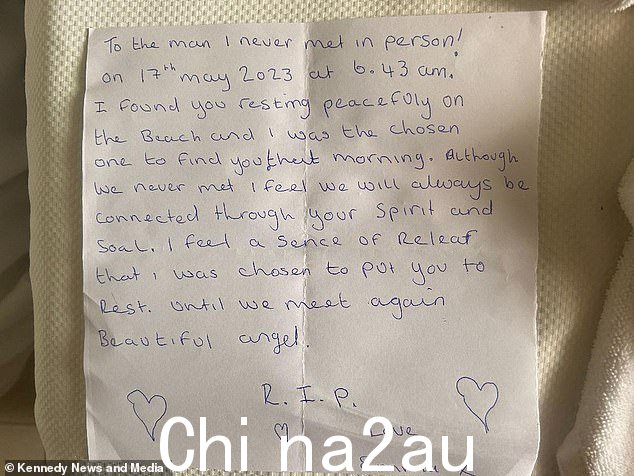 To the man I never met in person!
on 17th may 2023 at 6.43 am.
I found you resting peacefuly on
the Beach and I was the chosen
one to find you that morning. Although
we never met I feel we will always be
connected through your spirit and
soal. I feel a sence of Releaf
that i was chosen to put you to
Rest. until we meet again
Beautiful angel.
R.I.P.
Love
Chi na2au
© Kennedy News and Media